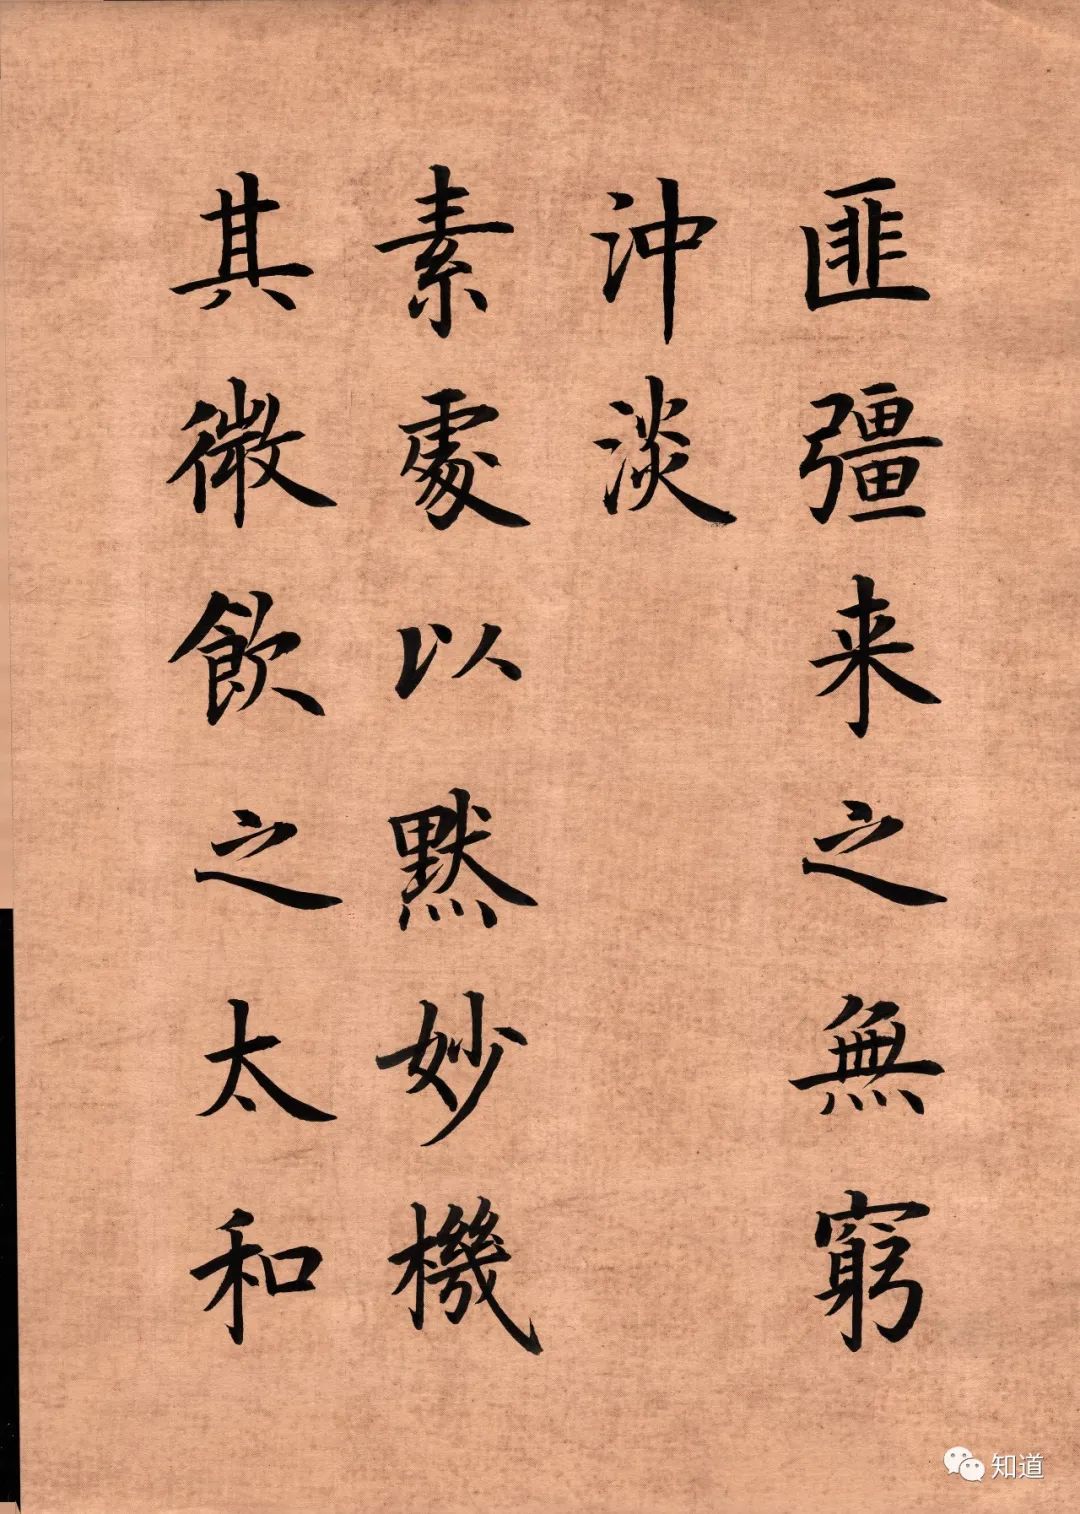 匪彊来之無窮
沖淡
素處以默妙機
其微飲之太和
知道